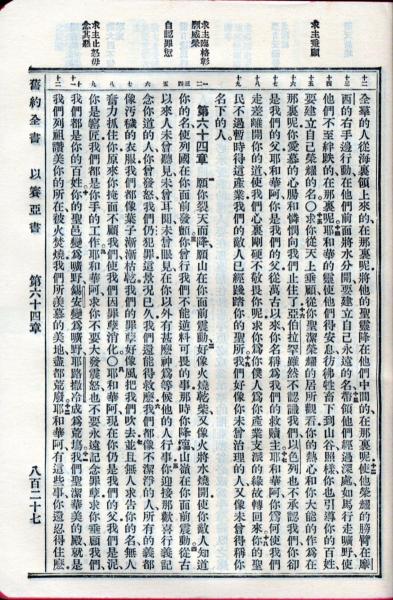 求主垂顧
求主臨格彰
顯威榮
自認罪愆
求主止怒毋
念其惡
全羣的人從海裏領上來的在那裏呢將他的聖靈降在他們中間的在那裏呢使他榮耀的膀臂在摩
西的右手邊行動在他們前面將水分開要建立自己永遠的名帶領他們經過深處如馬行走曠野使
他們不至絆跌的在那裏呢耶和華的靈使他們得安息彷彿牲畜下到山谷照樣你也引導你的百姓
要建立自己榮耀的名○求你從天上垂顧從你聖潔榮耀的居所觀看你的熱心和你大能的作為在
那裏呢你愛慕的心腸和憐憫向我們止住了亞伯拉罕雖然不認識我們以色列也不承認我們你卻
是我們的父耶和華阿你是我們的父從萬古以來你名稱為我們的救贖主耶和華阿你為何使我們
走差離開你的道使我們心裏剛硬不敬畏你呢求你為你僕人為你產業支派的緣故轉回來你的聖
民不過暫時得這產業我們的敵人已經踐踏你的聖所我們好像你未曾治理的人又像未曾得稱你
名下的人
第六十四章 願你裂天而降願山在你面前震動好像火燒乾柴又像火將水燒開使你敵人知道
你的名使列國在你面前發顫你曾行我們不能逆料可畏的事那時你降臨山嶺在你面前震動從古
以來人未曾聽見未曾耳聞未曾眼見在你以外有甚麼神為等候他的人行事你迎接那歡喜行義記
念你道的人你曾發怒我們仍犯罪這景況已久我們還能得救麼我們都像不潔淨的人所有的義都
像汚穢的衣服我們都像葉子漸漸枯乾我們的罪孽好像風把我們吹去並且無人求告你的名無人
奮力抓住你原來你掩面不顧我們使我們因罪孽消化○耶和華阿現在你仍是我們的父我們是泥
你是窰匠我們都是你手的工作耶和華阿求你不要大發震怒也不要永遠記念罪孽求你垂顧我們
我們都是你的百姓你的聖邑變為曠野錫安變為曠野耶路撒冷成為荒塲我們聖潔華美的殿就是
我們列祖讚美你的所在被火焚燒我們所羨慕的美地盡都荒廢耶和華阿有這些事你還忍得住麼
舊約全書 以賽亞書 第六十四章 八百二十七